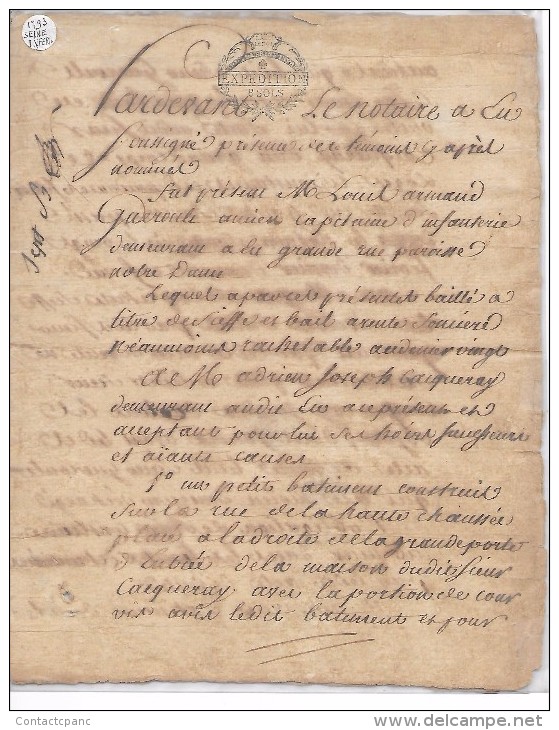 1793
SEINE
INFER.
EXPEDITION
2 SOLS
Pardevant Le notaire a Eu
soussigné présence des témoins cy après
nommés
fut présent M. Louis armand
Queroult ancien capitaine d'infanterie
demeurant a Eu grande rue paroisse
notre Dame
Lequel a par ces présentes baillé a
titre de fieffe et bail a rente foncière
néanmoins rachetable au denier vingt
a M. adrien Joseph Cacqueray
demeurant audit Eu au présent et
acceptant pour lui ses hoirs successeurs
et aïants causes
1º un petit batiment construit
sur la rue de la haute chaussée
placé a la droite de la grande porte
d'Entrée de la maison dudit sieur
Cacqueray avec la portion de cour
vis avis ledit batiment et pour
Contactcpanc
www.delcampe.net